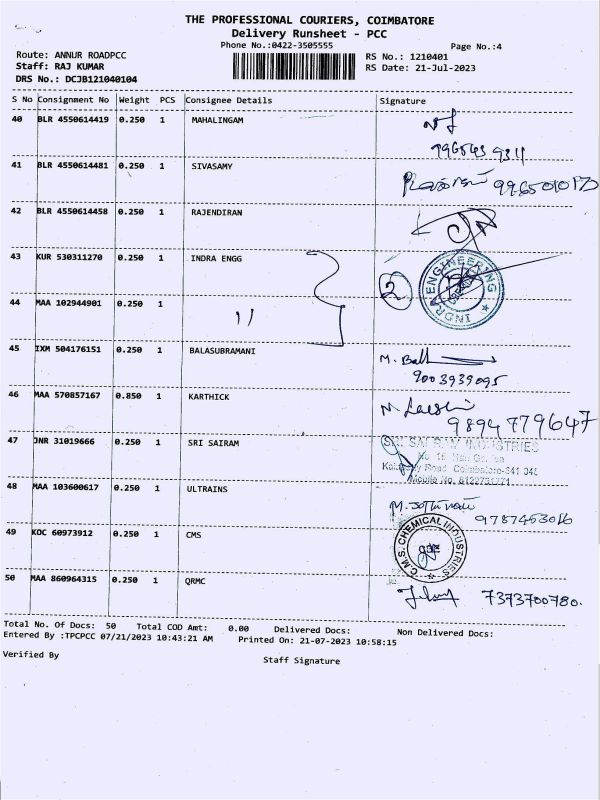 THE PROFESSIONAL COURIERS, COIMBATORE
Delivery Runsheet - PCC
Phone No.:0422-3505555
Page No.:4
Route: ANNUR ROADPCC
RS No.: 1210401
Staff: RAJ KUMAR
RS Date: 21-Jul-2023
DRS No.: DCJB121040104
S No Consignment No Weight PCS Consignee Details Signature
40 BLR 4550614419 0.250 1 MAHALINGAM
41 BLR 4550614481 0.250 1 SIVASAMY
42 BLR 4550614458 0.250 1 RAJENDIRAN
43 KUR 530311270 0.250 1 INDRA ENGG
2
INDRA ENGINEERING
44 MAA 102944901 0.250 1
45 IXM 504176151 0.250 1 BALASUBRAMANI
M. Ball
9003939095
46 MAA 570857167 0.850 1 KARTHICK
9894779647
47 JNR 31019666 0.250 1 SRI SAIRAM
SRI SAI RAM INDUSTRIES
Road Coimbatore-641
Mobile No.
48 MAA 103600617 0.250 1 ULTRAINS
49 KOC 60973912 0.250 1 CMS
C.M.S. CHEMICAL INDUSTRIES
50 MAA 860964315 0.250 1 QRMC
7373700780.
Total No. Of Docs: 50 Total COD Amt: 0.00 Delivered Docs: Non Delivered Docs:
Entered By :TPCPCC 07/21/2023 10:43:21 AM Printed On: 21-07-2023 10:58:15
Verified By
Staff Signature